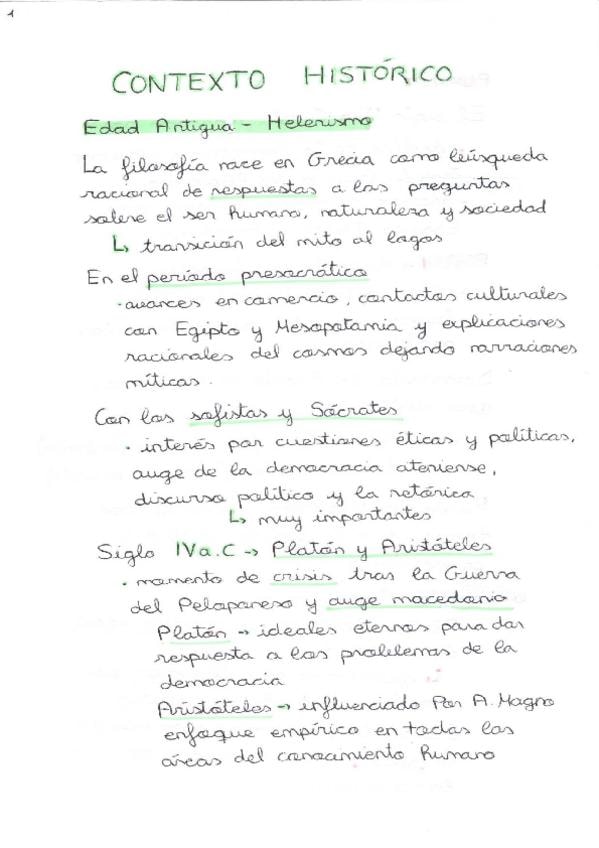 1
CONTEXTO HISTÓRICO
Edad Antigua - Helenismo
La filosofía nace en Grecia como búsqueda
racional de respuestas a las preguntas
sobre el ser humano, naturaleza y sociedad
↳ transición del mito al logos
En el período presocrático
· avances en comercio, contactos culturales
con Egipto y Mesopotamia y explicaciones
racionales del cosmos dejando narraciones
míticas.
Con los sofistas y Sócrates
· interés por cuestiones éticas y políticas,
auge de la democracia ateniense,
discurso político y la retórica
↳ muy importantes
Siglo IV a.C → Platón y Aristóteles
· momento de crisis tras la Guerra
del Peloponeso y auge macedonio
Platón → ideales eternos para dar
respuesta a los problemas de la
democracia
Aristóteles → influenciado Por A. Magno
enfoque empírico en todas las
áreas del conocimiento humano